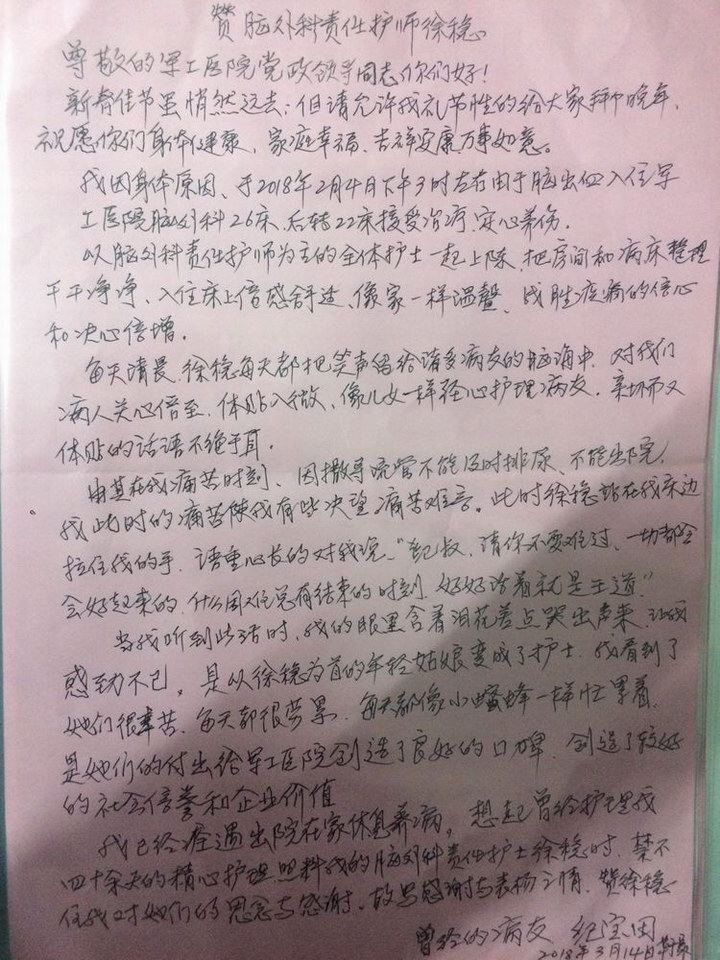 赞脑外科责任护师徐稳
尊敬的军工医院党政领导同志你们好！
新春佳节虽悄然远去；但请允许我礼节性的给大家拜个晚年，
祝愿你们身体健康、家庭幸福、吉祥安康万事如意。
我因身体原因、于2018年2月4日下午3时左右由于脑出血入住军
工医院脑外科26床、后转22床接受治疗、安心养伤。
以脑外科责任护师为主的全体护士一起上阵、把房间和病床整理
干干净净、入住床上倍感舒适、像家一样温馨、战胜疾病的信心
和决心倍增。
每天清晨、徐稳每天都把笑声留给诸多病友的脑海中、对我们
病人关心倍至、体贴入微、像儿女一样经心护理病友、亲切而又
体贴的话语不绝于耳。
由其在我痛苦时刻、因撤导流管不能及时排尿、不能出院
我此时的痛苦使我有些决望痛苦难言。此时徐稳站在我床边
拉住我的手、语重心长的对我说、“纪叔、请你不要难过、一切都会
会好起来的、什么困难总有结束的时刻、好好活着就是王道”
当我听到此话时、我的眼里含着泪花差点哭出声来、让我
感动不已。是以徐稳为首的年轻姑娘变成了护士、我看到了
她们很辛苦、每天都很劳累、每天都像小蜜蜂一样忙累着、
是她们的付出给军工医院创造了良好的口碑、创造了较好
的社会信誉和企业价值
我已经痊愈出院在家休息养病。想起曾经护理我
四十余天的精心护理照料我的脑外科责任护士徐稳时、禁不
住我对她们的思念与感谢。故写感谢与表扬之情、赞徐稳
曾经的病友 纪宝田
2018年3月14日